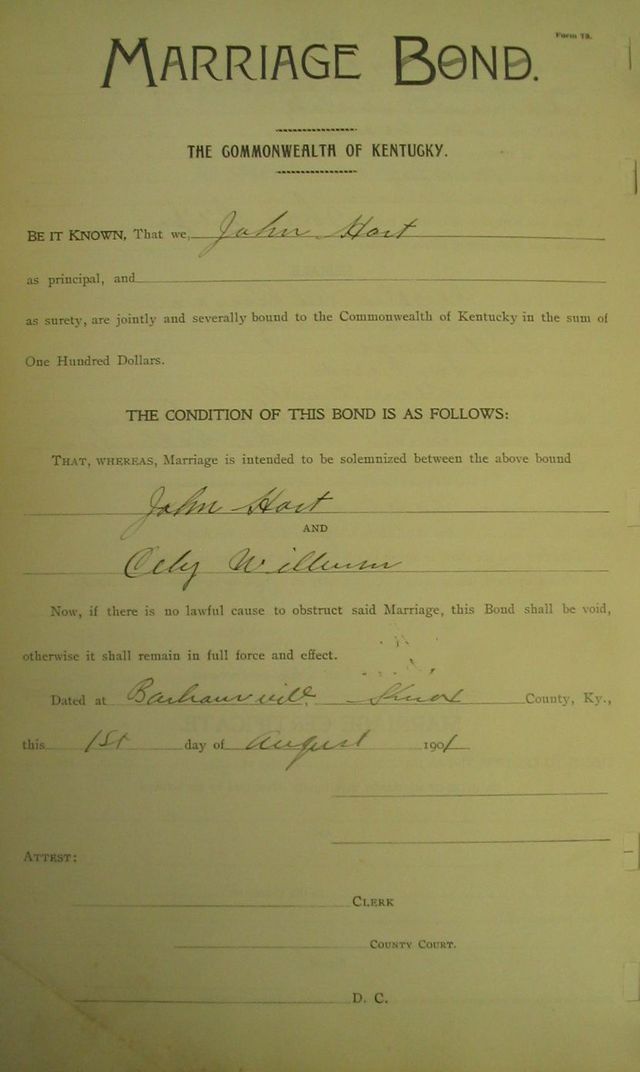 Form 13.
MARRIAGE BOND.
THE COMMONWEALTH OF KENTUCKY.
BE IT KNOWN, That we, John Hart
as principal, and
as surety, are jointly and severally bound to the Commonwealth of Kentucky in the sum of
One Hundred Dollars.
THE CONDITION OF THIS BOND IS AS FOLLOWS:
THAT, WHEREAS, Marriage is intended to be solemnized between the above bound
John Hart
AND
Now, if there is no lawful cause to obstruct said Marriage, this Bond shall be void,
otherwise it shall remain in full force and effect.
Dated at Knox County, Ky.,
this 1st day of August 1901
ATTEST:
CLERK
COUNTY COURT.
D. C.